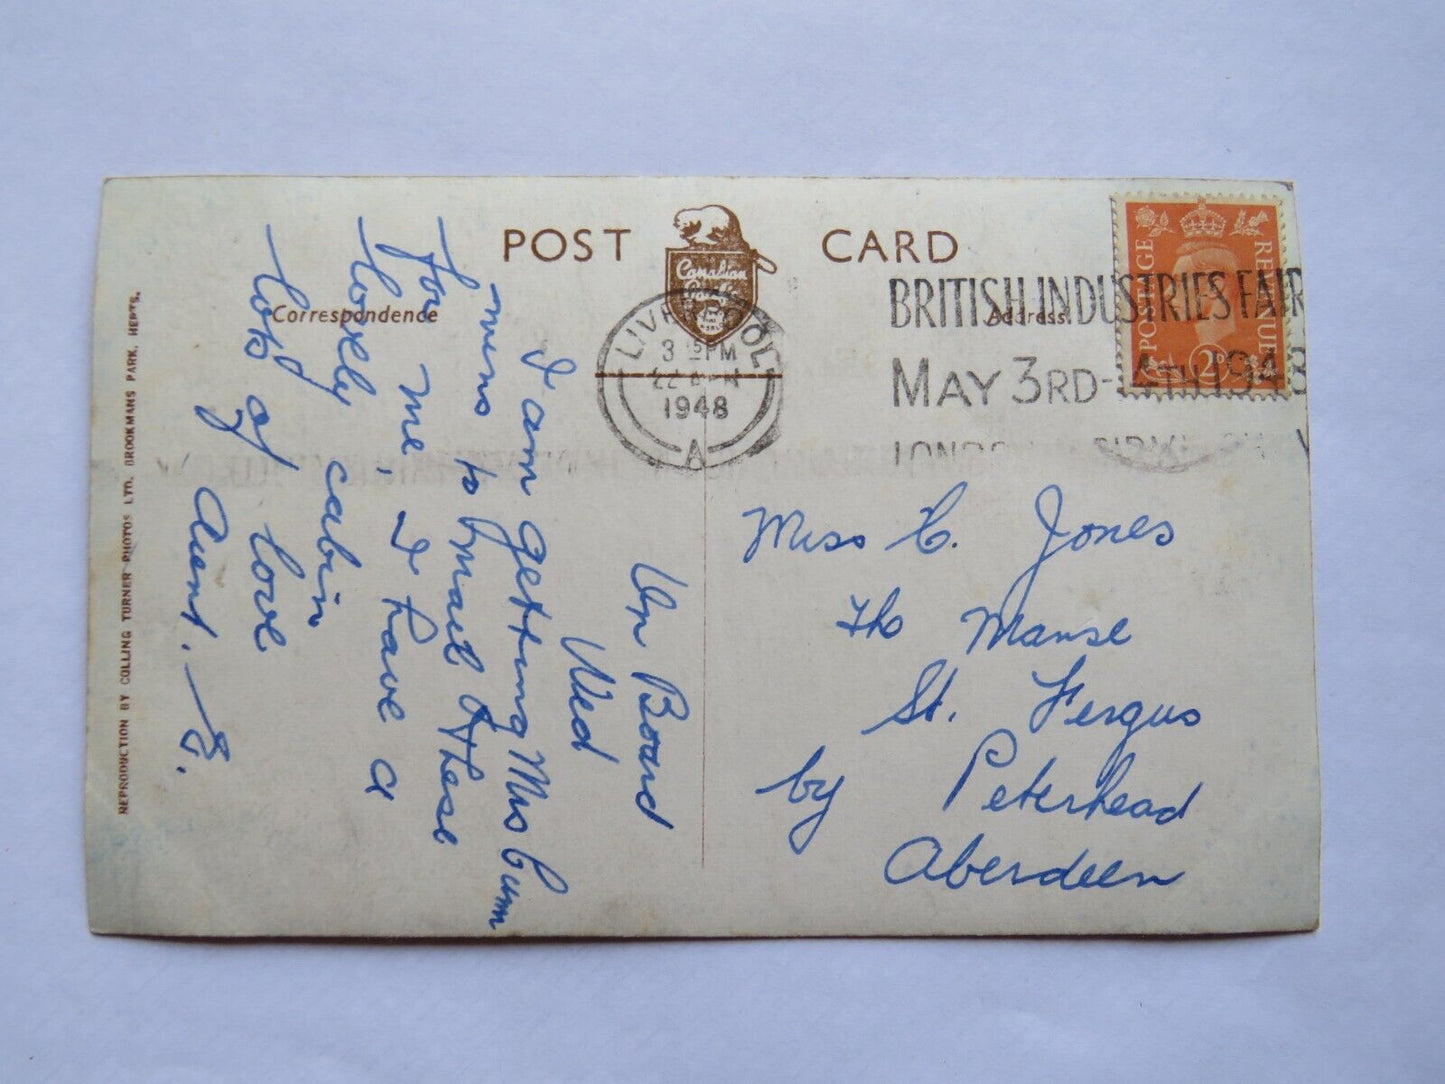 POST CARD
Canadian
Correspondence
Address
LIVERPOOL
3 15 PM
1948
A
BRITISH INDUSTRIES FAIR
MAY 3RD - 14TH 1948
POSTAGE
REVENUE
2D
On Board
Wed
I am getting Mrs Cumm
-mins to mail these
for me, I have a
lovely cabin
Lots of love
Aunt. E.
Miss C. Jones
The Manse
St. Fergus
by Peterhead
Aberdeen
REPRODUCTION BY COLLING TURNER PHOTOS LTD. BROOKMANS PARK, HERTS.